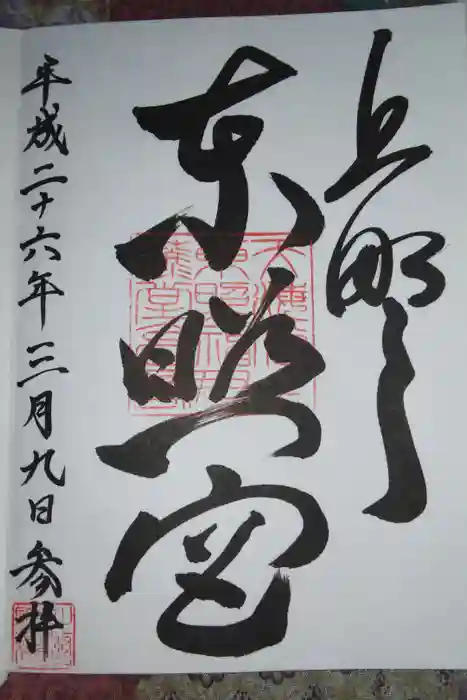 上野
東照宮
平成二十六年三月九日参拝